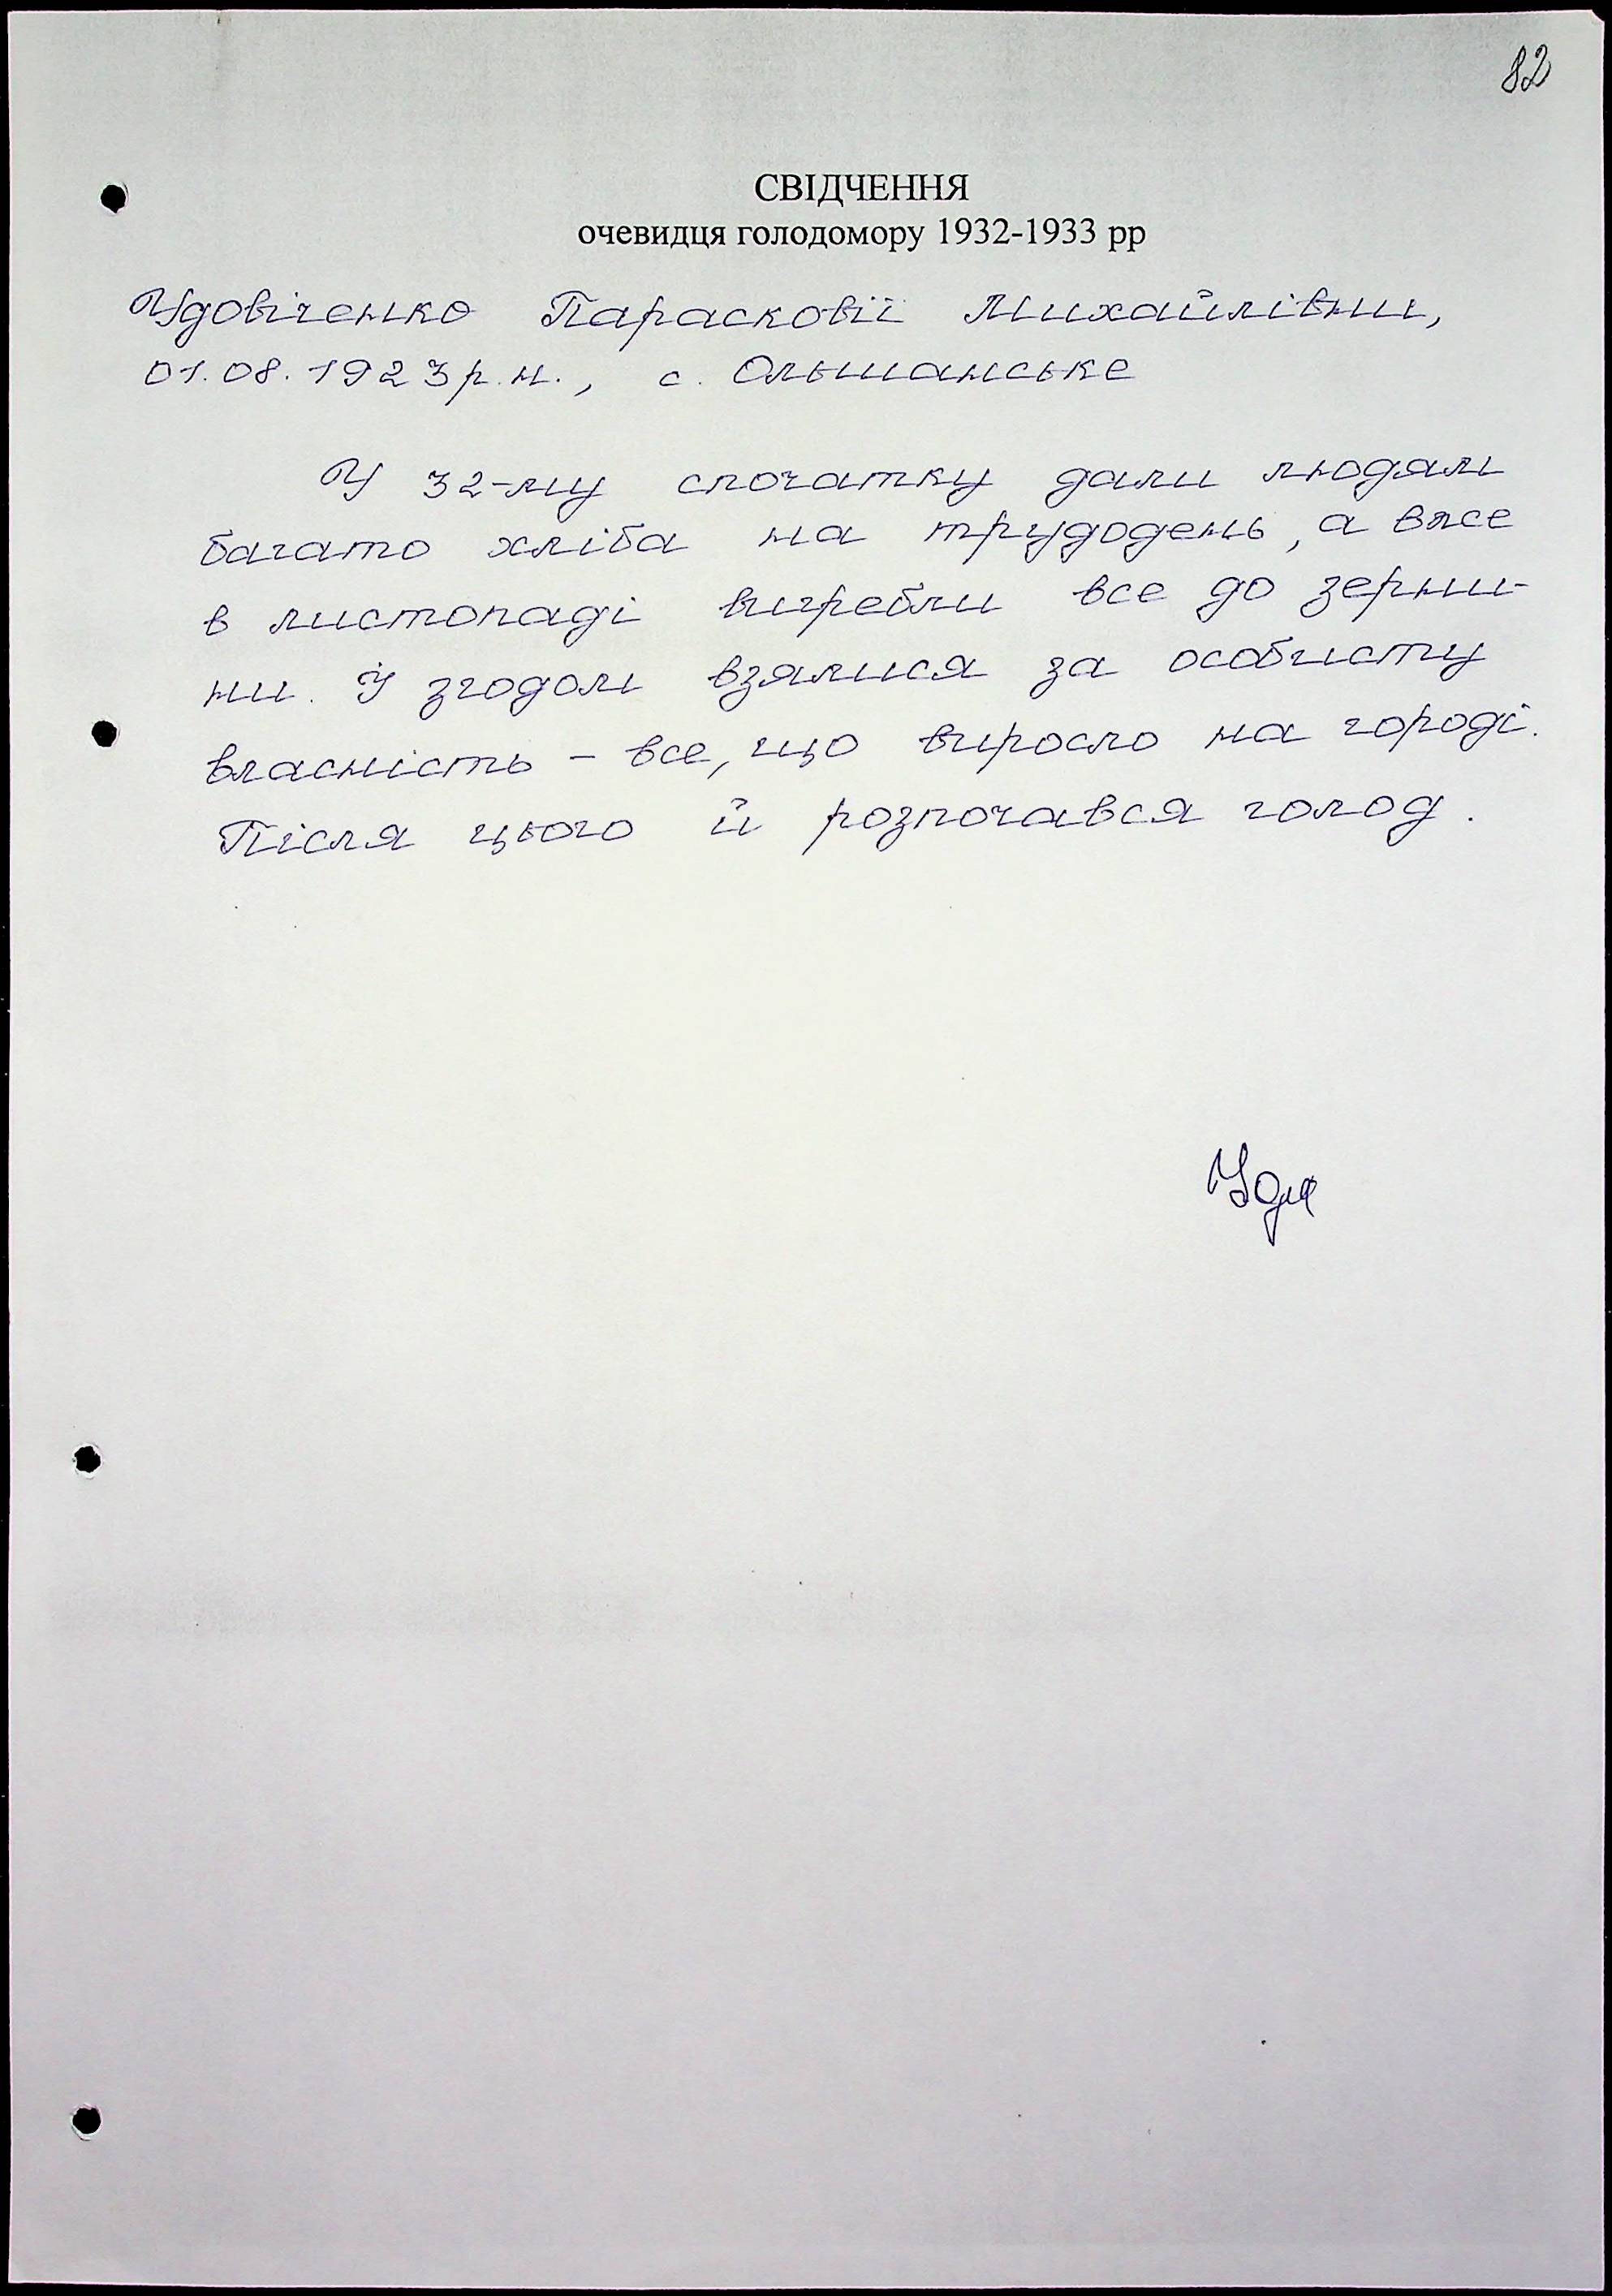 82
СВІДЧЕННЯ
очевидця голодомору 1932-1933 рр
Удовіченко Парасковії Михайлівни,
01.08.1923 р.н., с. Ольшанське
У 32-му спочатку дали людям
багато хліба на трудодень, а вже
в листопаді вигребли все до зерни-
ни. І згодом взялися за особисту
власність – все, що виросло на городі.
Після цього й розпочався голод.